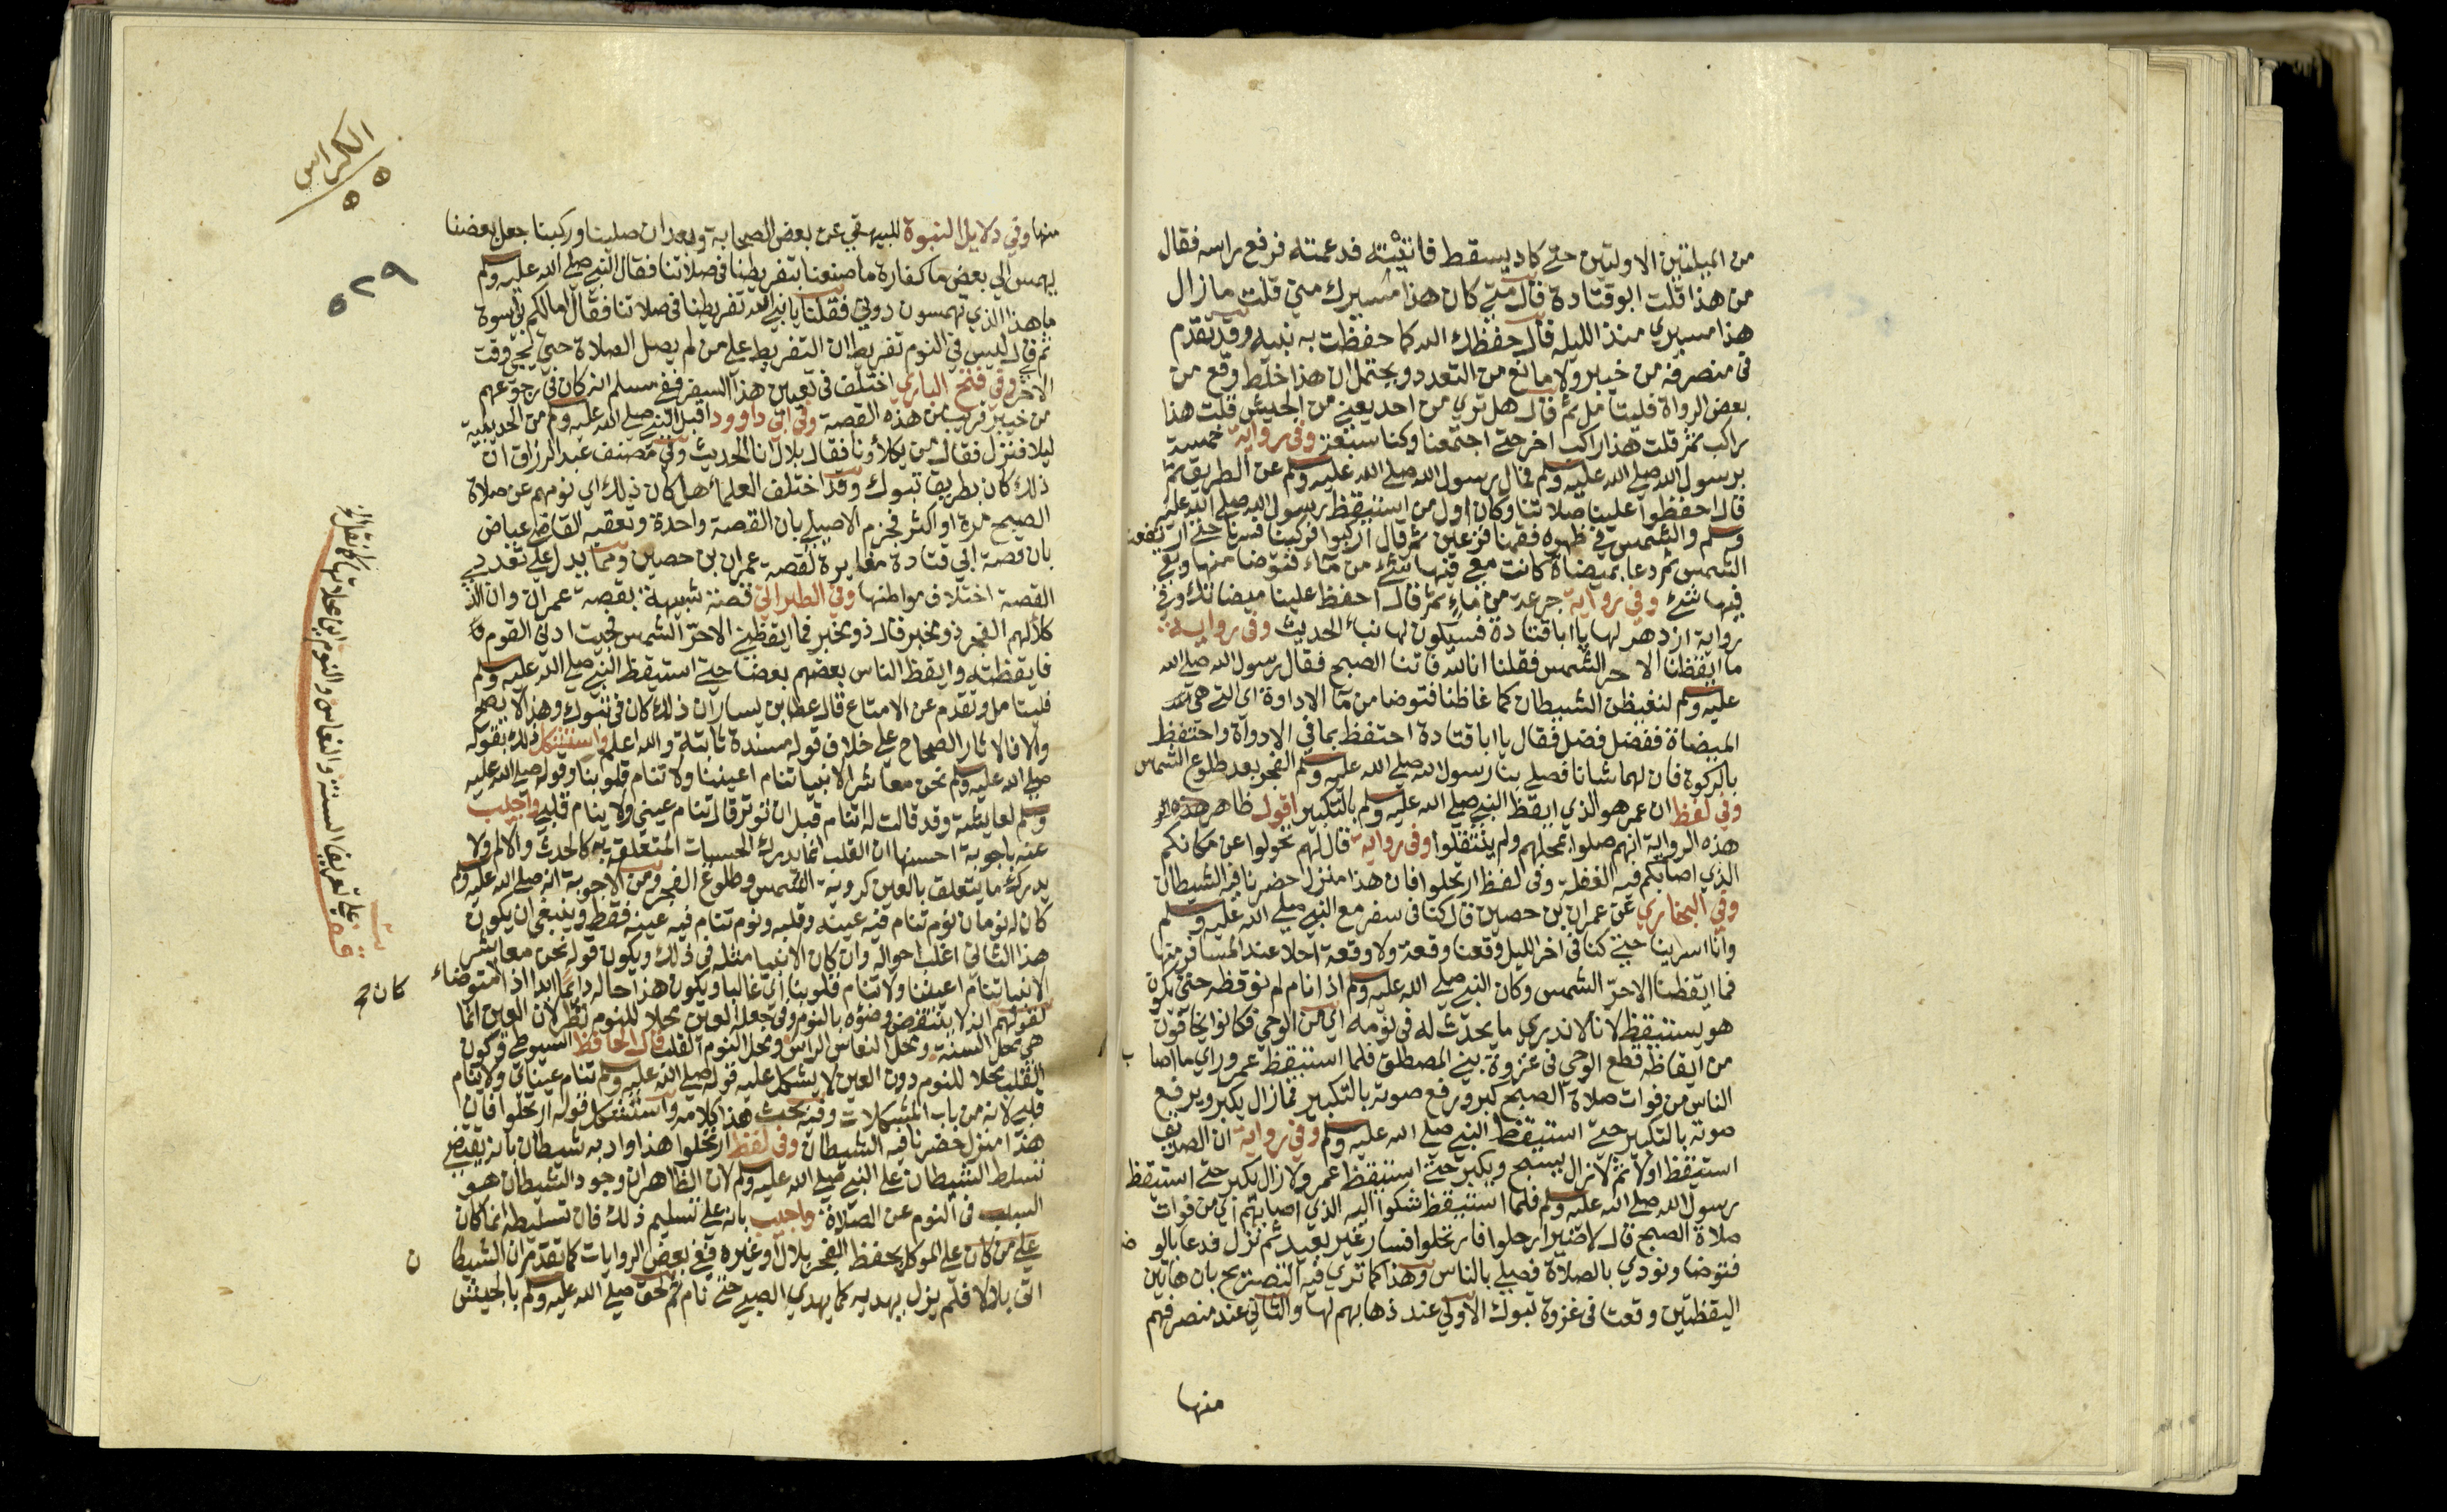 من الميلتين الاولتين حتي كاد يسقط فاتيته فدعمته فرفع راسه فقال
من هذا قلت ابو قتادة قال متي كان هذا مسيرك مني قلت ما زال
هذا مسيري منذ الليله قال حفظك الله كما حفظت به نبيه وقد تقدم
في منصرفه من خيبر ولا مانع من التعدد ويحتمل ان هذا خلط وقع من
بعض الرواة فليتامل ثم قال هل تري من احد يعني من الجيش قلت هذا
راكب ثم قلت هذا راكب اخر حتي اجتمعنا وكنا سبعة وفي رواية خمسة
برسول الله صلي الله عليه وسلم فمال رسول الله صلي الله عليه وسلم عن الطريق ثم
قال احفظوا علينا صلاتنا وكان اول من استيقظ رسول الله صلي الله عليه
وسلم والشمس في ظهره فقمنا فزعين ثم قال اركبوا فركبنا فسرنا حتي ارتفعت
الشمس ثم دعا بميضاة كانت معي فيها شئ من ماء فتوضا منها وبقي
فيها شئ وفي رواية جرعة من ماء ثم قال احفظ علينا ميضاتك وفي
رواية ازدهر لها يا ابا قتادة فسيكون لها نبا الحديث وفي رواية
ما ايقظنا الا حر الشمس فقلنا انا لله فاتنا الصبح فقال رسول الله صلي الله
عليه وسلم لنغيظن الشيطان كما غاظنا فتوضا من ما الاداوة اي التي هي
الميضاة ففضل فضل فقال يا ابا قتادة احتفظ بما في الاداوة واحتفظ
بالركوة فان لهما شانا فصلي بنا رسول الله صلي الله عليه وسلم الفجر بعد طلوع الشمس
وفي لفظ ان عمر هو الذي ايقظ النبي صلي الله عليه وسلم بالتكبير اقول ظاهر هذه
هذه الرواية انهم صلوا بمحلهم ولم ينتقلوا وفي رواية قال لهم تحولوا عن مكانكم
الذي اصابكم فيه الغفلة وفي لفظ ارتحلوا فان هذا منزل حضرنا فيه الشيطان
وفي البخاري عن عمران بن حصين قال كنا في سفر مع النبي صلي الله عليه وسلم
وانا اسرينا حتي كنا في اخر الليل وقعنا وقعة ولا وقعة احلا عند المسافر منها
فما ايقظنا الا حر الشمس وكان النبي صلي الله عليه وسلم اذا نام لم نوقظه حتي يكون
هو يستيقظ لانا لا ندري ما يحدث له في نومه اي من الوحي فكانوا يخافون
من ايقاظه قطع الوحي في غزوة بني المصطلق فلما استيقظ عمر وراي ما اصاب
الناس من فوات صلاة الصبح كبر ورفع صوته بالتكبير فما زال يكبر ويرفع
صوته بالتكبير حتي استيقظ النبي صلي الله عليه وسلم وفي رواية ان الصديق
استيقظ اولا ثم لا زال يسبح ويكبر حتي استيقظ عمر ولا زال يكبر حتي استيقظ
رسول الله صلي الله عليه وسلم فلما استيقظ شكوا اليه الذي اصابهم اي من فوات
صلاة الصبح قال لا ضير ارحلوا فارتحلوا فسار غير بعيد ثم نزل فدعا بالوضو
فتوضا ونودي بالصلاة فصلي بالناس وهذا كما تري فيه التصريح بان هاتين
اليقظتين وقعتا في غزوة تبوك الاولي عند ذهابهم لها والثاني عند منصرفهم
منها
الكراس
٥٥
٥٢٩
منها وفي دلايل النبوة للبيهقي عن بعض الصحابة وبعد ان صلينا وركبنا جعل بعضنا
يهمس الي بعض ما كفارة ما صنعنا بتفريطنا في صلاتنا فقال النبي صلي الله عليه وسلم
ما هذا الذي تهمسون دوني فقلنا يا نبي الله تفريطنا في صلاتنا فقال اما لكم في اسوة
ثم قال ليس في النوم تفريط ان التفريط علي من لم يصل الصلاة حتي يجي وقت
الاخري وفي فتح الباري اختلف في تعيين هذا السفر ففي مسلم انه كان في رجوعهم
من خيبر قريب من هذه القصة وفي ابي داوود اقبل النبي صلي الله عليه وسلم من الحديبية
ليلا فنزل فقال من يكلاونا فقال بلال انا الحديث وفي مصنف عبد الرزاق ان
ذلك كان بطريق تبوك وقد اختلف العلماء هل كان ذلك اي نومهم عن صلاة
الصبح مرة او اكثر فجزم الاصيلي بان القصة واحدة وتعقبه القاضي عياض
بان قصة ابي قتادة مغايرة لقصة عمران بن حصين ومما يدل علي تعدد
القصة اختلاف مواطنها وفي الطبراني قصة شبيهة بقصة عمران وان الذي
كلألهم الفجر ذو مخبر قال ذو مخبر فما ايقظني الا حر الشمس فجيت ادني القوم
فايقظته وايقظ الناس بعضهم بعضا حتي استيقظ النبي صلي الله عليه وسلم
فليتامل وتقدم عن الامتاع قال عطا بن يسار ان ذلك كان في تبوك وهذا لا يصح
والا فالاثار الصحاح علي خلاف قوله مسندة ثابتة والله اعلم واستشكل ذلك بقوله
صلي الله عليه وسلم نحن معاشر الانبيا تنام اعيننا ولا تنام قلوبنا وقوله صلي الله عليه
وسلم لعايشة وقد قالت له اتنام قبل ان توتر قال تنام عيني ولا ينام قلبي واجيب
عنه باجوبة احسنها ان القلب انما يدرك الحسيات المتعلقة به كالحدث والالم ولا
يدرك ما يتعلق بالعين كروية الشمس وطلوع الفجر ومن الاجوبة انه صلي الله عليه وسلم
كان له نومان نوم تنام فيه عينه وقلبه ونوم تنام فيه عينه فقط وينبغي ان يكون
هذا الثاني اغلب احواله وان كان الانبيا مثله في ذلك ويكون قوله نحن معاشر
الانبيا تنام اعيننا ولا تنام قلوبنا اي غالبا ويكون هذا حاله دايما ابدا اذا كان متوضاء
لقولهم انه لا ينتقض وضوه بالنوم وفي جعله العين محلا للنوم نظر لان العين انما
هي محل السنة ومحل النعاس الراس ومحل النوم القلب قال الحافظ السيوطي وكون
القلب محلا للنوم دون العين لا يشكل عليه قوله صلي الله عليه وسلم تنام عيناي ولا ينام
قلبي لانه من باب المشكلات وفيه بحث هذا كلامه واستشكل قوله ارتحلوا فان
هذا منزل حضرنا فيه الشيطان وفي لفظ ارتحلوا هذا واد به شيطان بانه يقتضي
تسلط الشيطان علي النبي صلي الله عليه وسلم لان الظاهر ان وجود الشيطان هو
السبب في النوم عن الصلاة واجيب بانه علي تسليم ذلك فان تسليطه انما كان
علي من كان علي الموكل بحفظ الفجر بلال او غيره ففي بعض الروايات كما تقدم ان الشيطان
اتي بلالا فلم يزل يهديه كما يهدي الصبي حتي نام ثم لحق صلي الله عليه وسلم بالجيش
قف علي تعريف السنة والنعاس والنوم